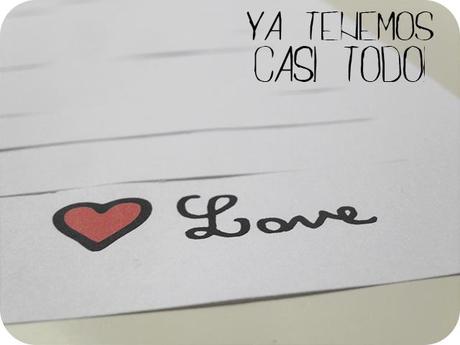 YA TENEMOS
CASI TODO!
Love